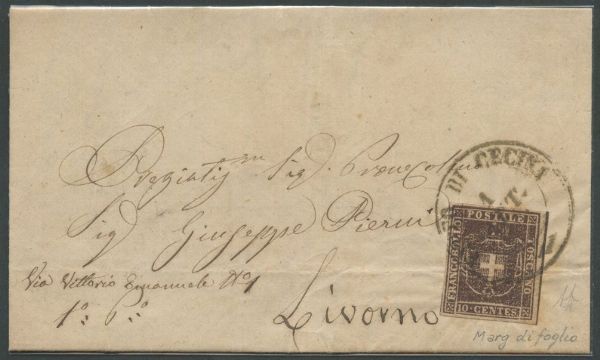 Pregiatis^mo Sig.
Sig Giuseppe Pierini
Via Vittorio Emanuele N° 1
1° P°
Livorno
DI CECINA
FRANCOBOLLO
POSTALE
TOSCANO
10 CENTES
Marg di foglio